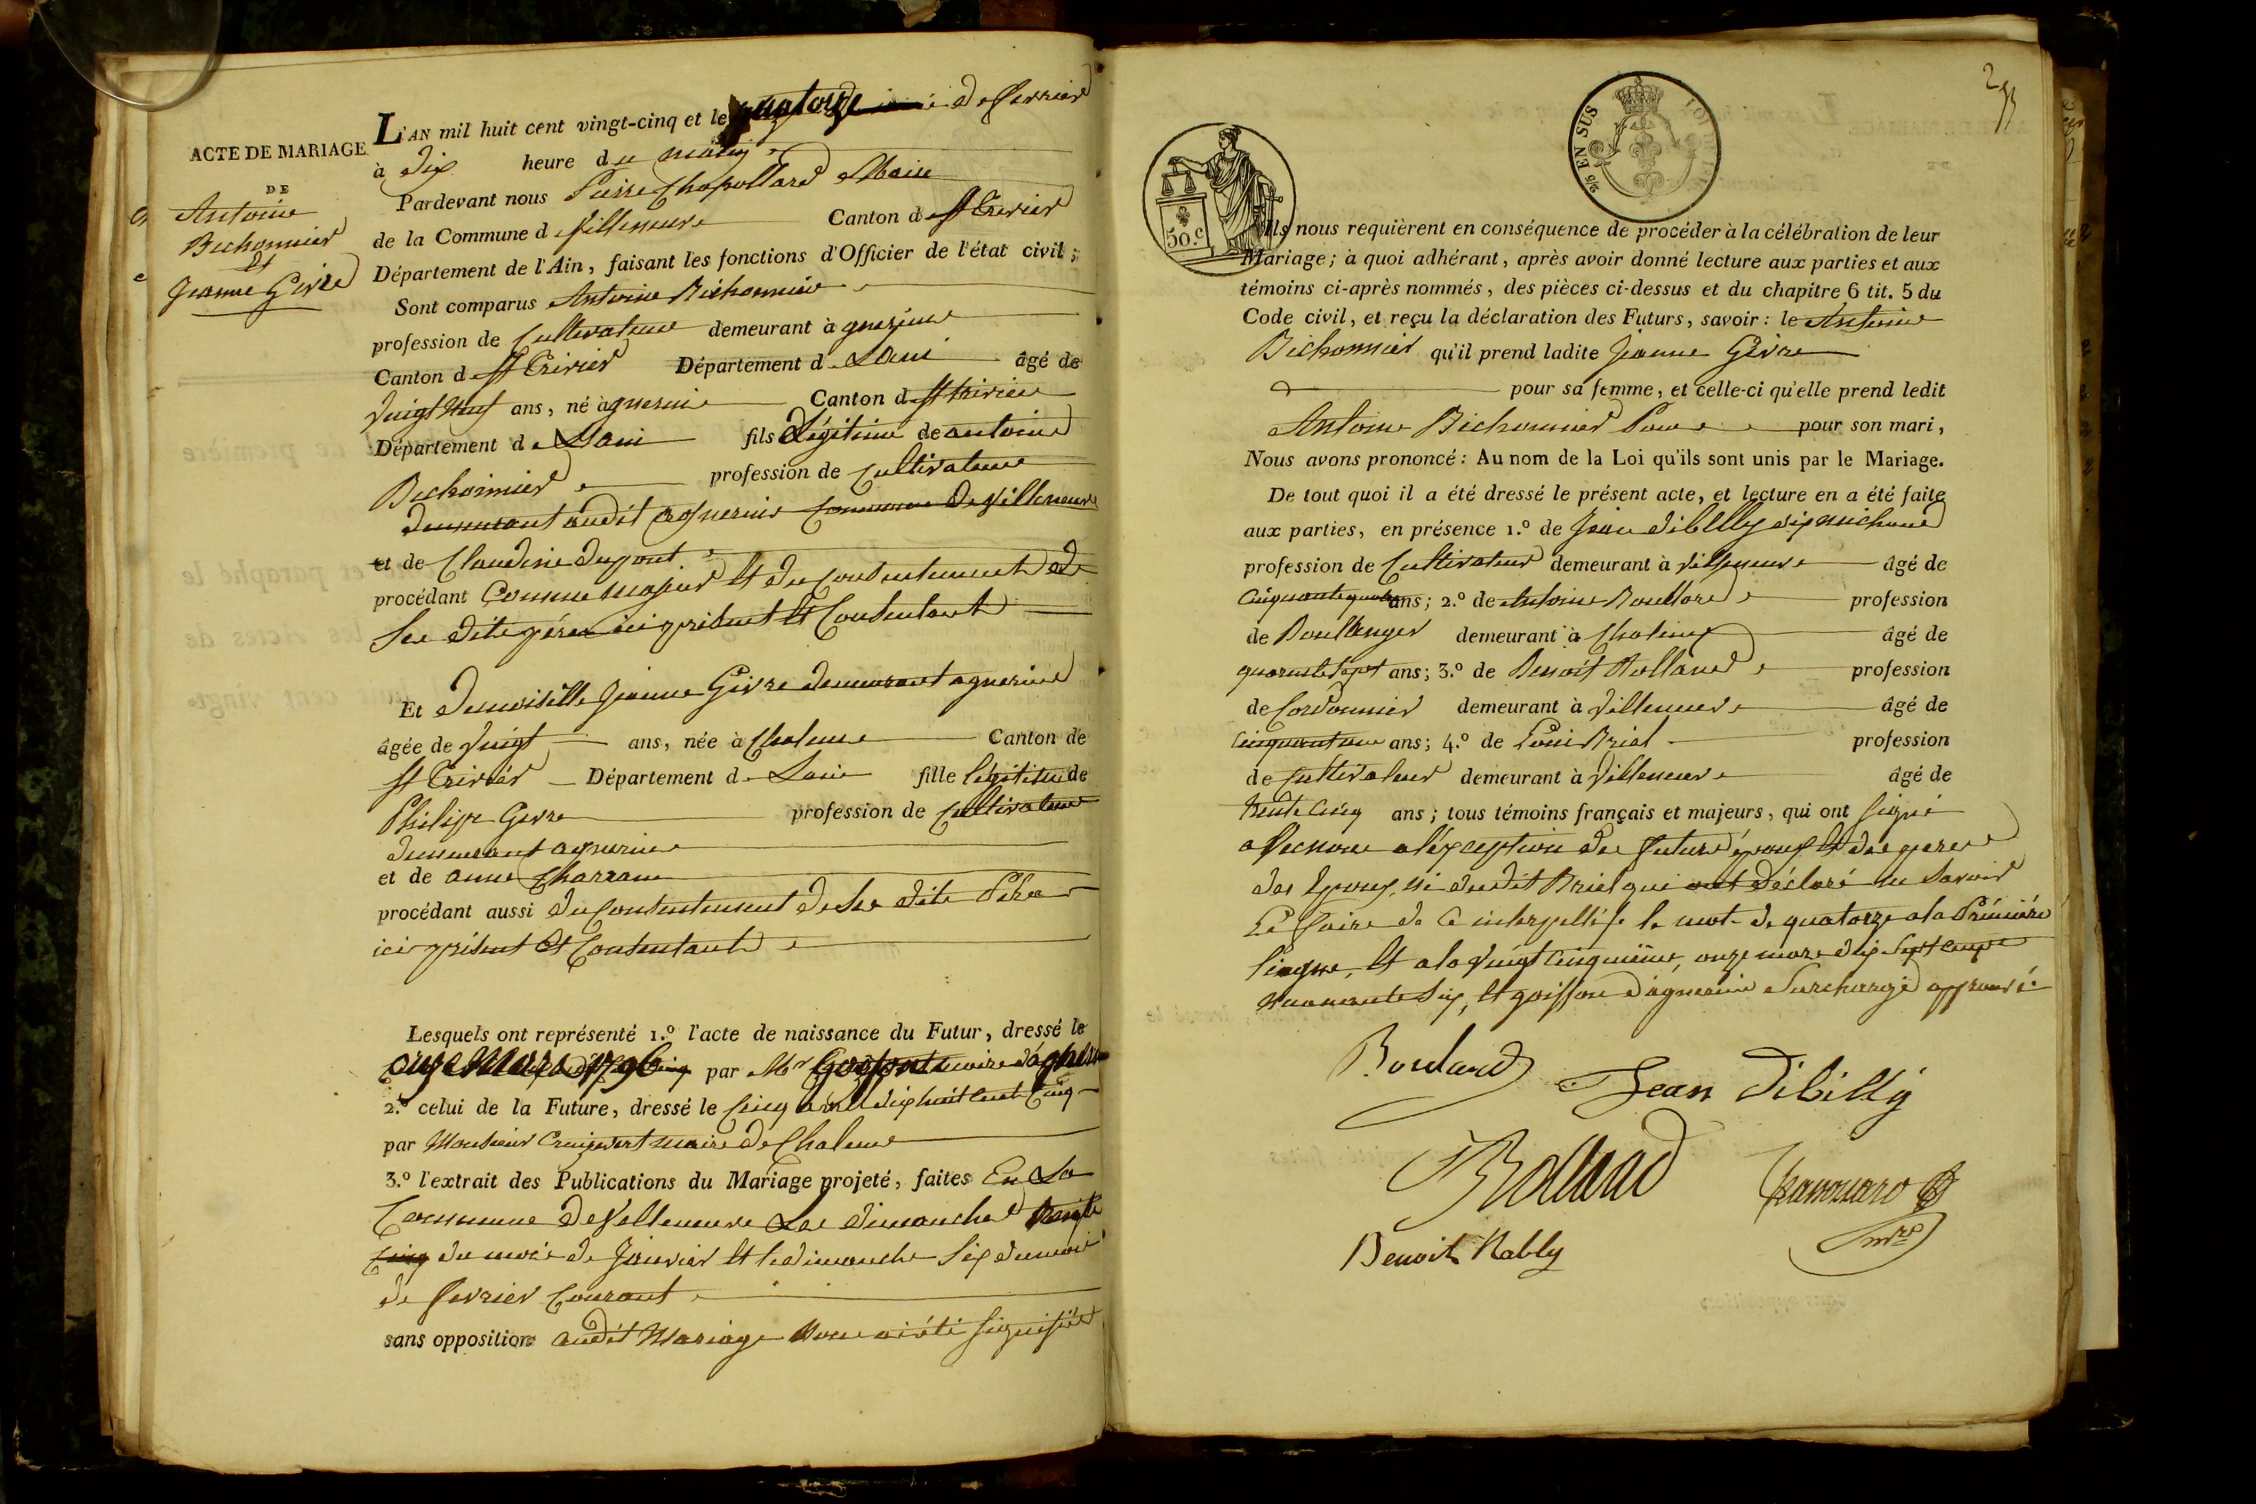 ACTE DE MARIAGE
DE
Antoine
Bichonnier
Et
Jeanne Givre
L'AN mil huit cent vingt-cinq et le quatorze de fevrier
à dix heure du matin
Pardevant nous Pierre Chapollard Maire
de la Commune de Villeneuve Canton de St Trivier
Département de l'Ain, faisant les fonctions d'Officier de l'état civil;
Sont comparus Antoine Bichonnier
profession de Cultivateur demeurant à agnerine
Canton de St Trivier Département de Lain âgé de
Vingt neuf ans, né à agnerine Canton de St trivier
Département de Lain fils Légitime de antoine
Bichonnier profession de Cultivateur
demeurant audit agnerine Commune de Villeneuve
et de Claudine Dupont
procédant Comme majeur Et du Consentement de
Ses dits père ici présent Et Consentant
Et demoiselle Jeanne Givre demeurant agnerine
âgée de Vingt ans, née à Chaleine Canton de
St Trivier Département de Lain fille légitime de
Philipe Givre profession de Cultivateur
demeurant agnerine
et de anne Charran
procédant aussi du Consentement de Ses dits Père
ici présent Et Consentant
Lesquels ont représenté 1.º l'acte de naissance du Futur, dressé le
onze Mars 1796 par Mr maire d'agnerine
2.º celui de la Future, dressé le Cinq dixhuit Cent Cinq
par Monsieur maire de Chaleine
3.º l'extrait des Publications du Mariage projeté, faites En La
Commune de Villeneuve Les dimanche
du mois de Janvier Et le dimanche Six du mois
de fevrier Courant
sans opposition audit Mariage Nous ai été Signifiée
25 EN SUS
50.c
Ils nous requièrent en conséquence de procéder à la célébration de leur
Mariage; à quoi adhérant, après avoir donné lecture aux parties et aux
témoins ci-après nommés, des pièces ci-dessus et du chapitre 6 tit. 5 du
Code civil, et reçu la déclaration des Futurs, savoir: le Antoine
Bichonnier qu'il prend ladite Jeanne Givre
pour sa femme, et celle-ci qu'elle prend ledit
Antoine Bichonnier Pour pour son mari,
Nous avons prononcé: Au nom de la Loi qu'ils sont unis par le Mariage.
De tout quoi il a été dressé le présent acte, et lecture en a été faite
aux parties, en présence 1.º de Jean dibilly
profession de Cultivateur demeurant à Villeneuve âgé de
Cinquante quatre ans; 2.º de Antoine Boullard profession
de Boullenger demeurant à Chaleins âgé de
quarente Sept ans; 3.º de Benoit Rolland profession
de Cordonnier demeurant à Villeneuve âgé de
Cinquante un ans; 4.º de Louis Briel profession
de Cultivateur demeurant à Villeneuve âgé de
trente Cinq ans; tous témoins français et majeurs, qui ont Signé
avec nous a l'exception des futurs époux Et des peres
des Epoux, ni dudit Briel qui ont déclaré ne Savoir
Le faire de Ce interpellés le mot de quatorze a la Première
ligne, Et a la Vingt Cinquième, onze mars dix Sept Cent
Nonante Six, Et d'agnerine Surchargé approuvé
Boulard
Jean dibilly
Rolland
Benoit Nably